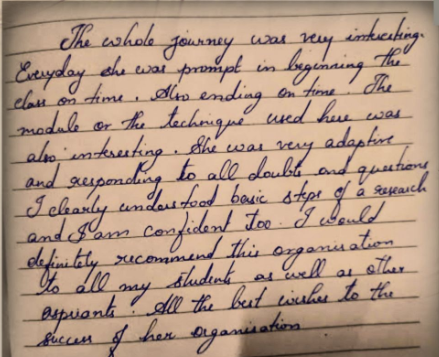 The whole journey was very interesting.
Everyday she was prompt in beginning the
class on time. Also ending on time. The
module or the technique used here was
also interesting. She was very adaptive
and responding to all doubts and questions
I clearly understood basic steps of a research
and I am confident too. I would
definitely recommend this organisation
to all my students as well as other
aspirants. All the best wishes to the
success of her organisation